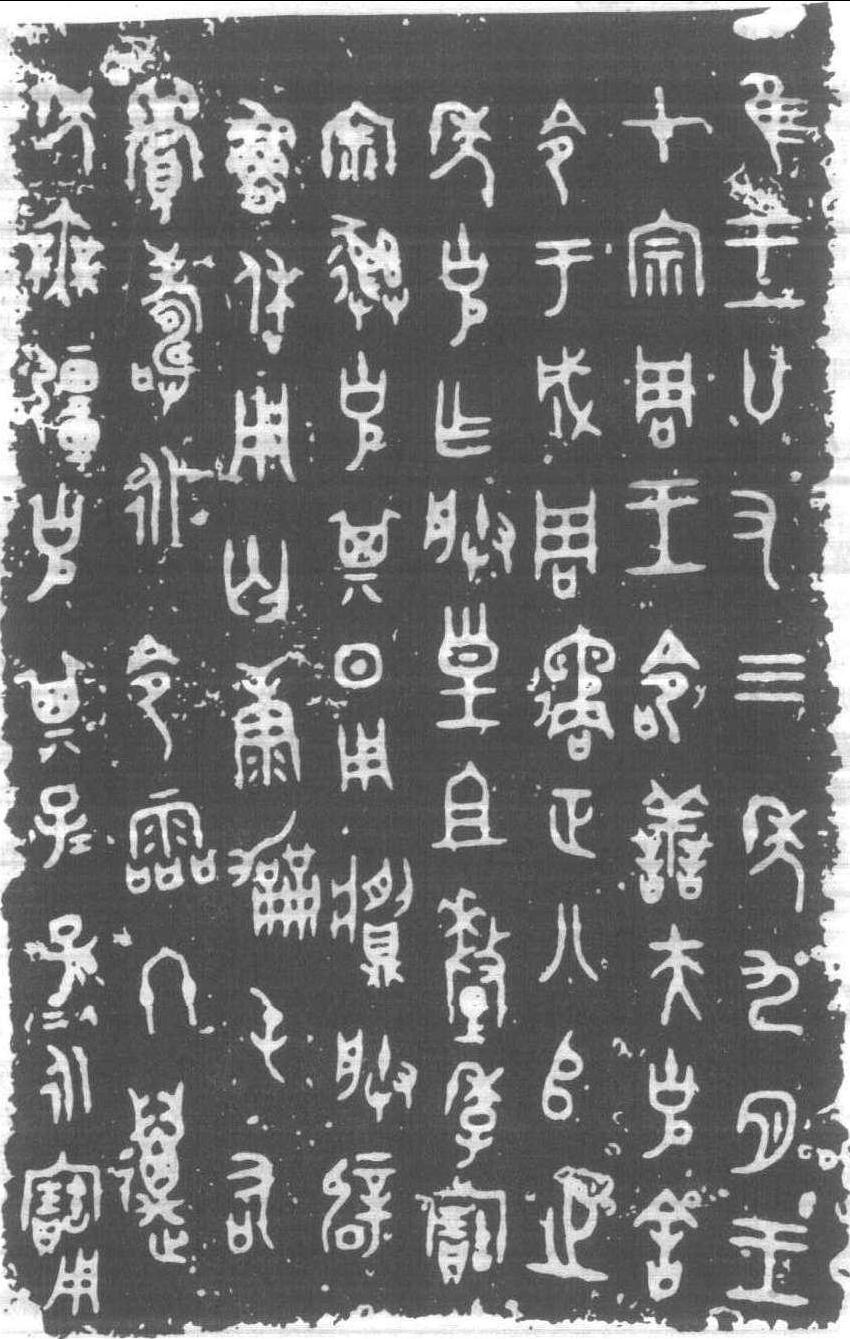 隹王廿又三年九月王
才宗周王命善夫克舍
令于成周遹正八𠂤之
年克乍朕皇且釐季寶
宗彝克其日用朕辟
魯休用匄康屯右
眉壽永令霝冬邁
年無彊克其子=孫=永寶用